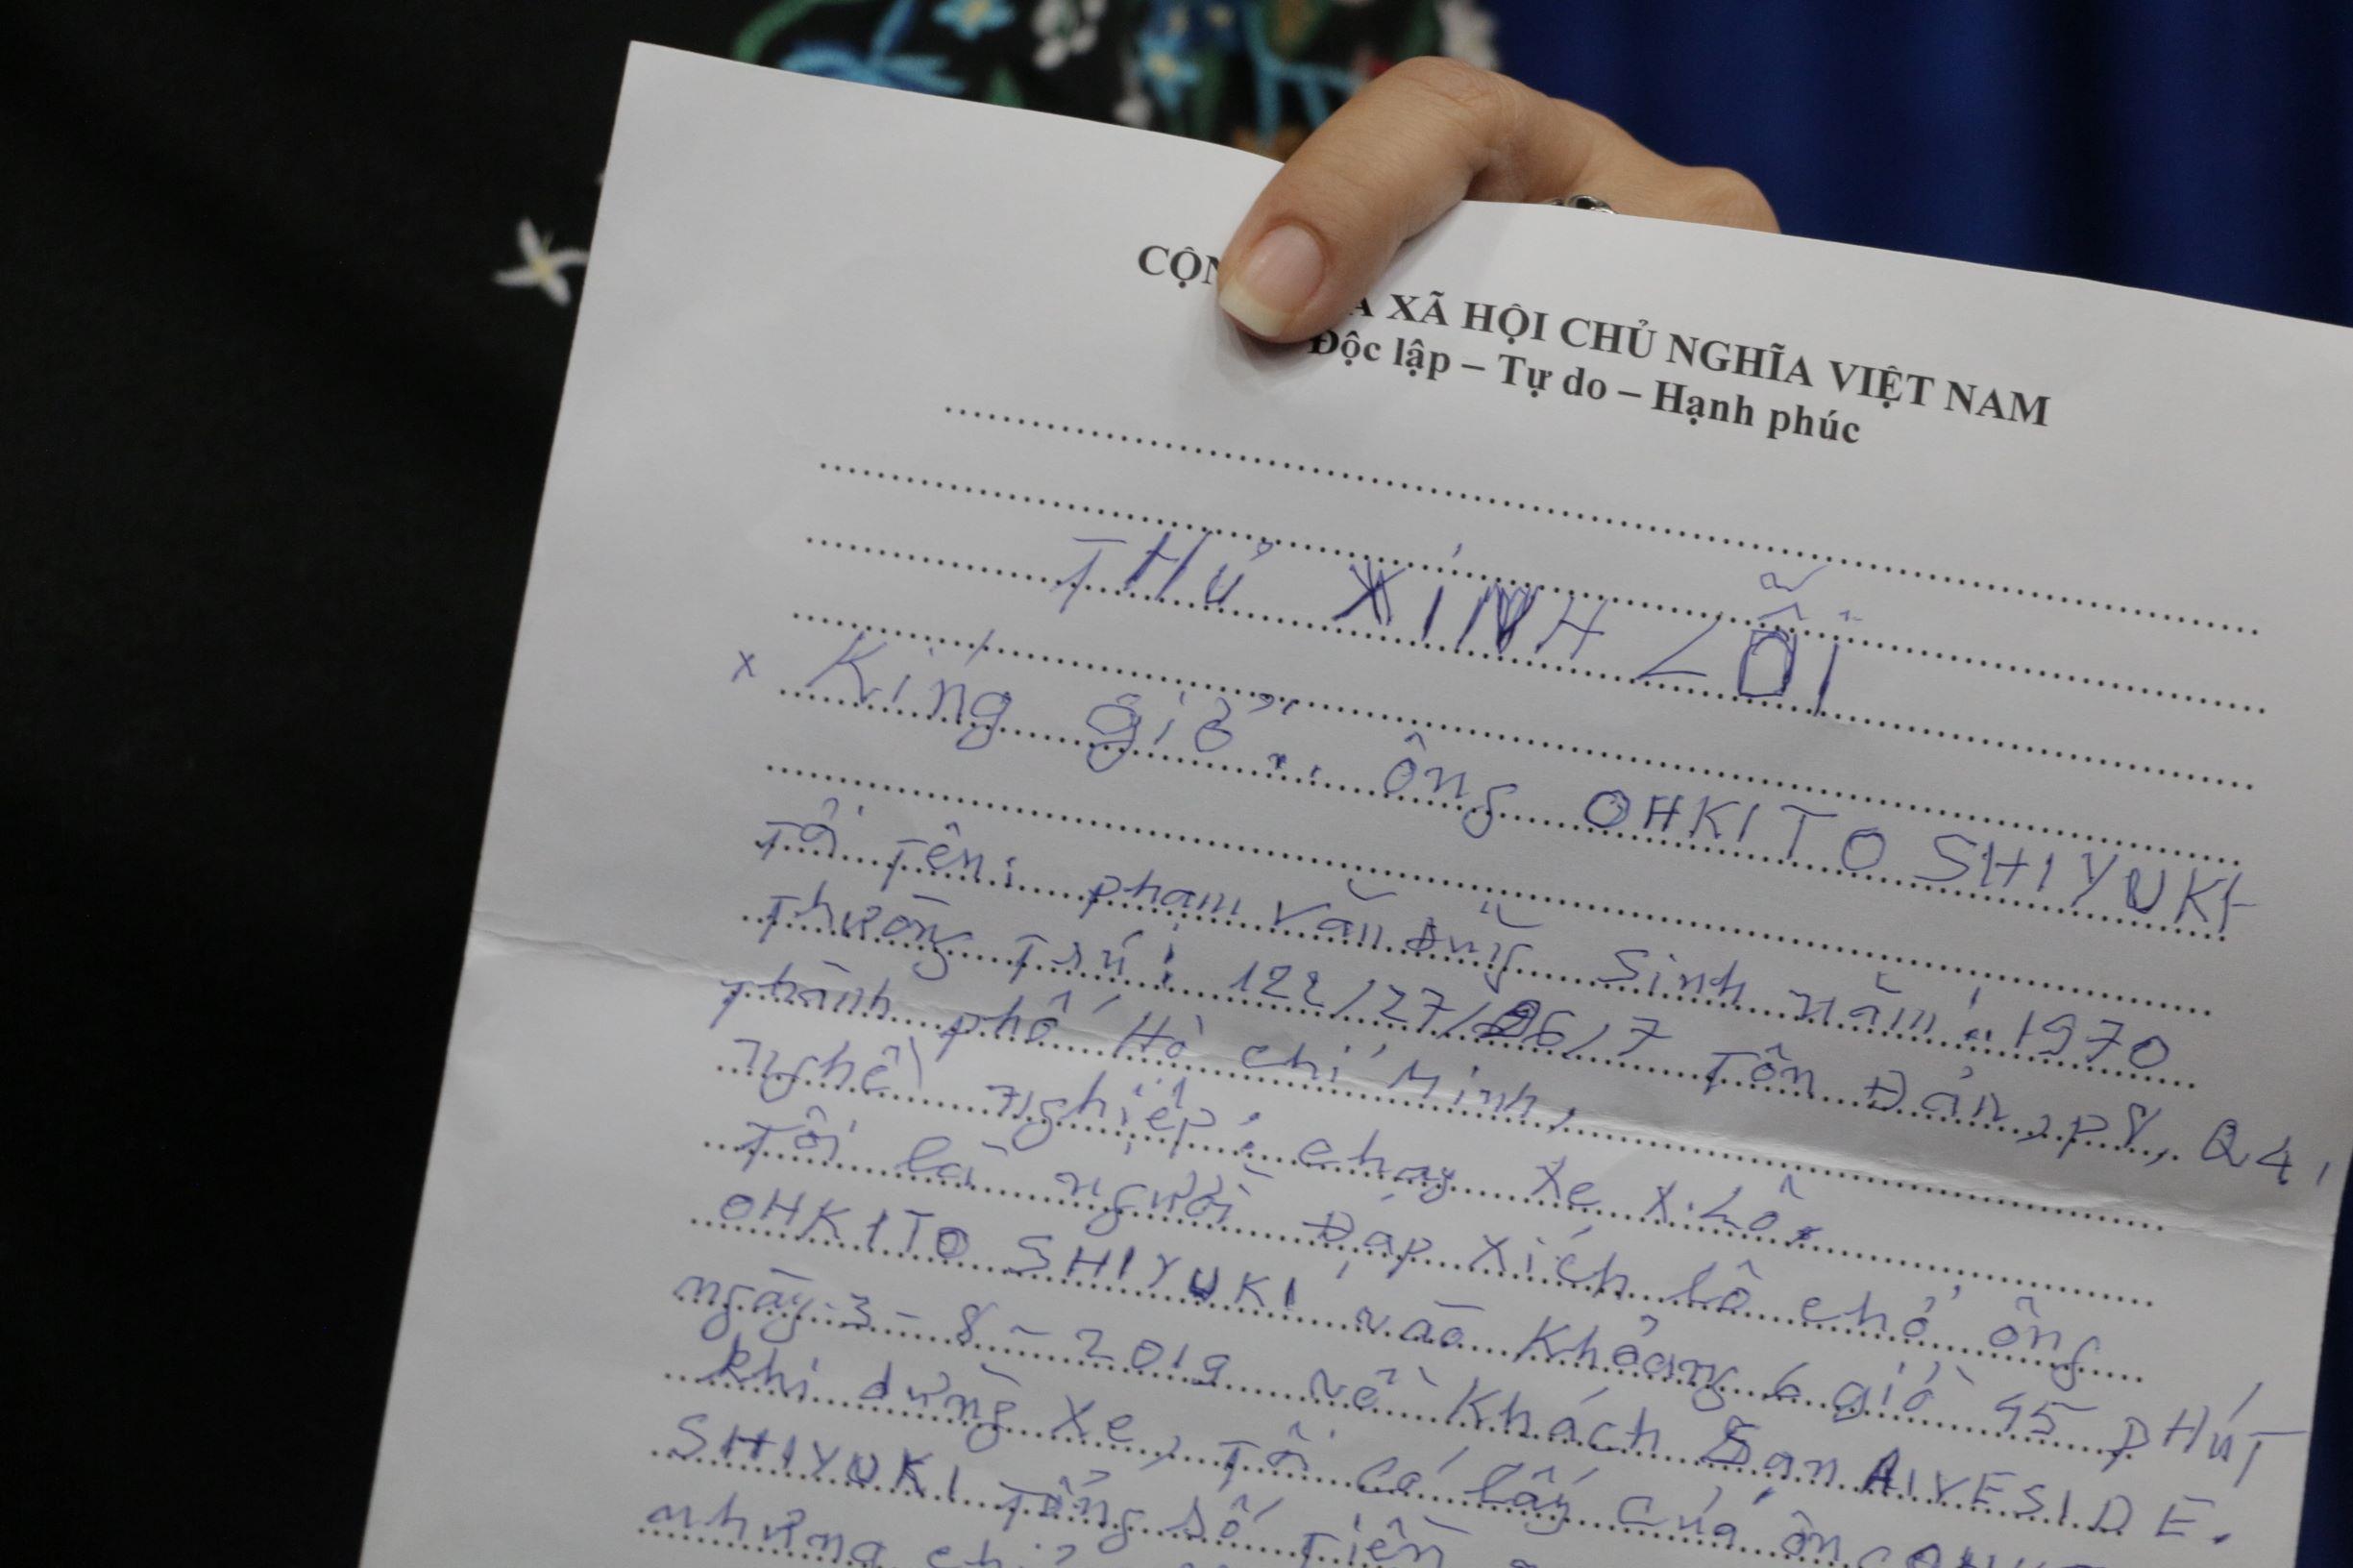 CỘN A XÃ HỘI CHỦ NGHĨA VIỆT NAM
Độc lập – Tự do – Hạnh phúc
THƯ XINH LỖI
x Kíng giở: ông OHKITO SHIYUKI
Tôi Tên: phạm văn Dũng Sinh năm: 1970
Thường Trú: 122/27/26/7 Tôn Đản, p8, Q4,
Thành phố Hồ chí Minh,
nghề nghiệp: chạy xe X.Lô.
Tôi là người Đạp xích lô chở ông
OHKITO SHIYUKI vào Khoảng 6 giờ 45 pHúT
ngày 3-8-2019 về Khách Sạn RIVESIDE.
khi dừng xe, Tôi có lấy của ôn
SHIYUKI Tổng Số Tiền
nhưng